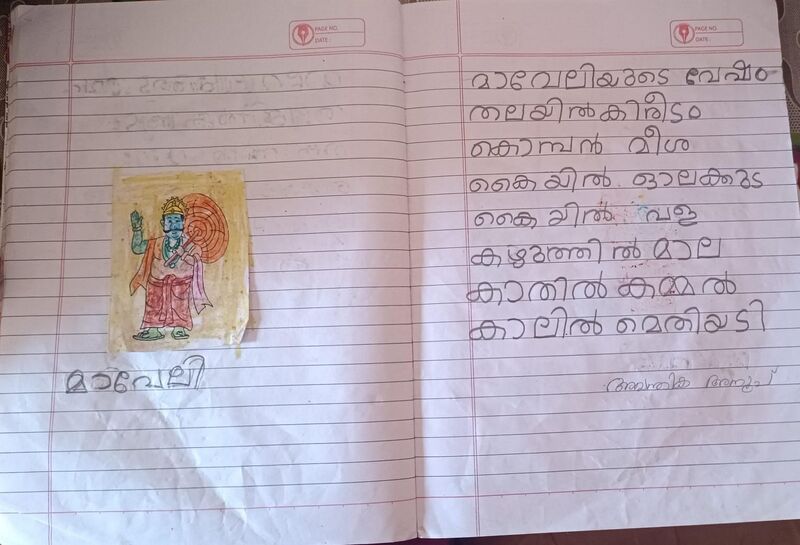 PAGE NO.
DATE :
മാവേലി
PAGE NO.
DATE :
മാവേലിയുടെ വേഷം
തലയിൽ കിരീടം
കൊമ്പൻ മീശ
കൈയിൽ ഓലക്കുട
കൈയിൽ വള
കഴുത്തിൽ മാല
കാതിൽ കമ്മൽ
കാലിൽ മെതിയടി